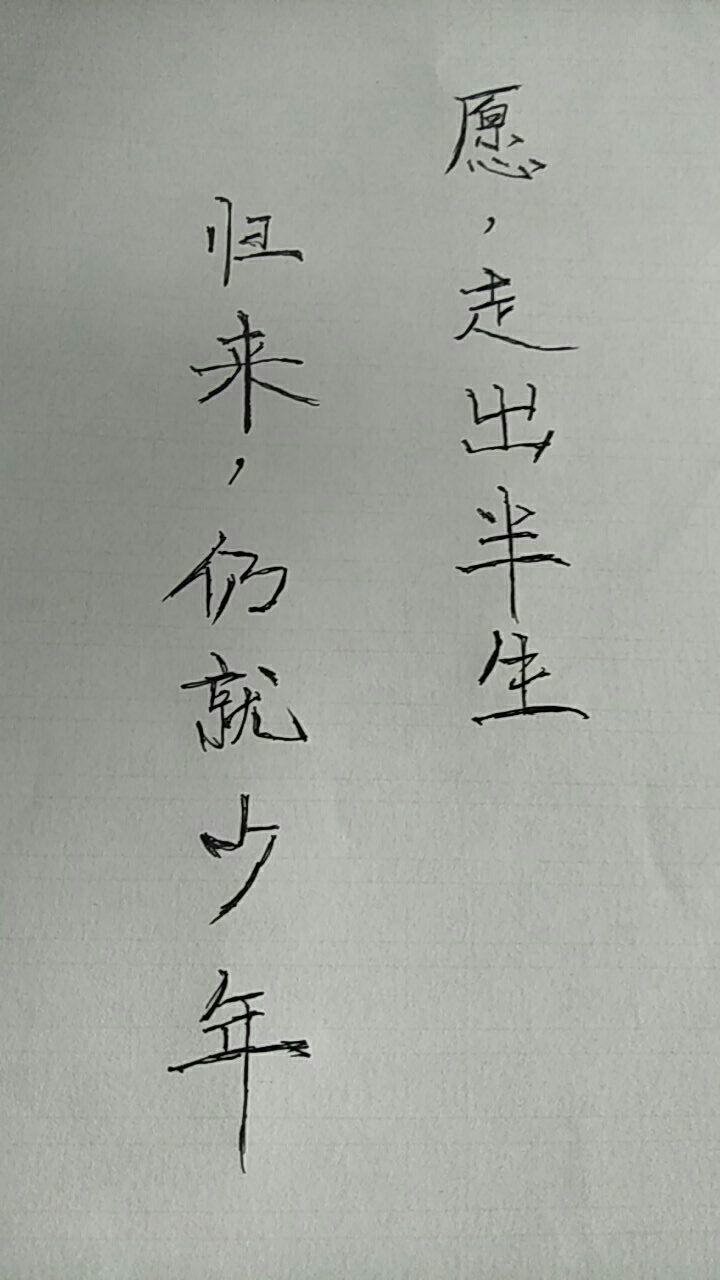 愿,走出半生
归来,仍就少年